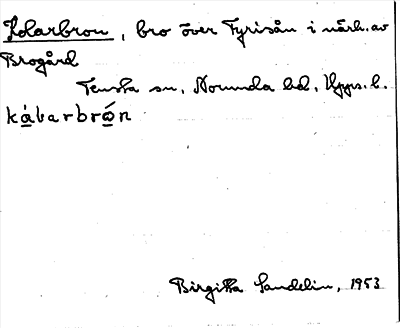 Kolarbron, bro över Fyrisån i närh. av
Brogård
Tensta sn, Norunda hd, Upps. l.
kå̱larbrǫ́n
Birgitta Sandelin, 1953